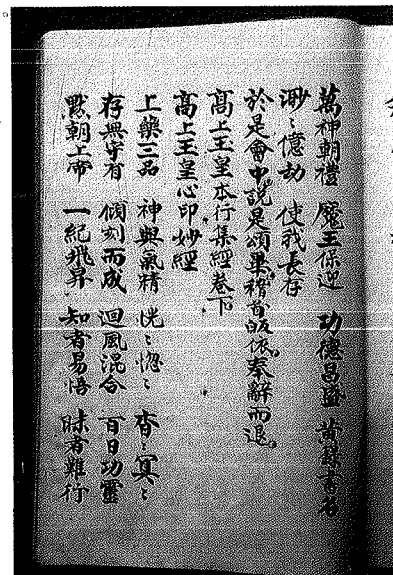 萬神朝禮　魔王保迎　功德昌盛　黃籙書名
渺〻億劫　使我長存
於是會中說是頌畢稽首皈依奉辭而退
高上王皇本行集經卷下
高上王皇心印妙經
上藥三品　神與氣精　恍〻惚〻　杳〻冥〻
存無守有　傾刻而成　迴風混合　百日功靈
默朝上帝　一紀飛昇　知者易悟　昧者難行